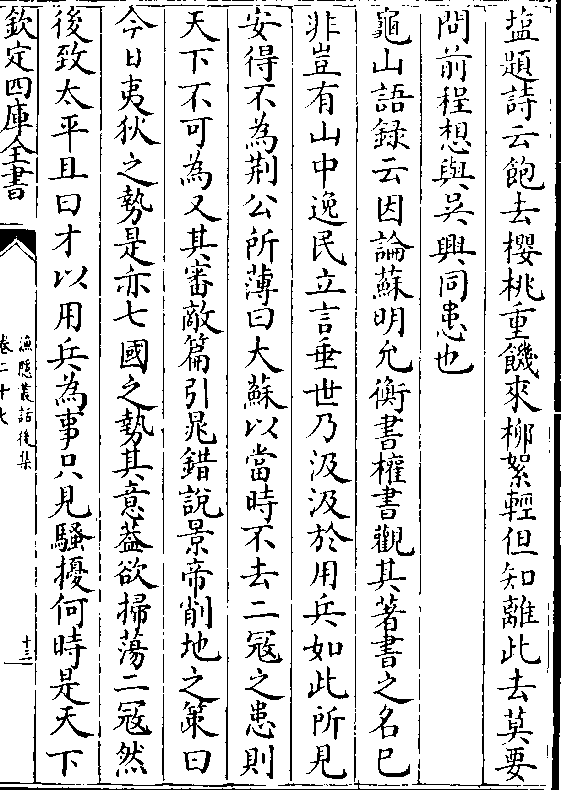 塩題詩云飽去櫻桃重饑來柳絮輕但知離此去莫要
問前程想與吳興同患也
龜山語録云因論蘇明允衡書權書觀其著書之名已
非豈有山中逸民立言垂世乃汲汲於用兵如此所見
安得不為荆公所薄曰大蘇以當時不去二冦之患則
天下不可為又其審敵篇引晁錯說景帝削地之策曰
今日夷狄之勢是亦七國之勢其意葢欲掃蕩二冦然
後致太平且曰才以用兵為事只見騷擾何時是天下
欽定四庫全書
漁隠叢話後集
卷二十七
十三